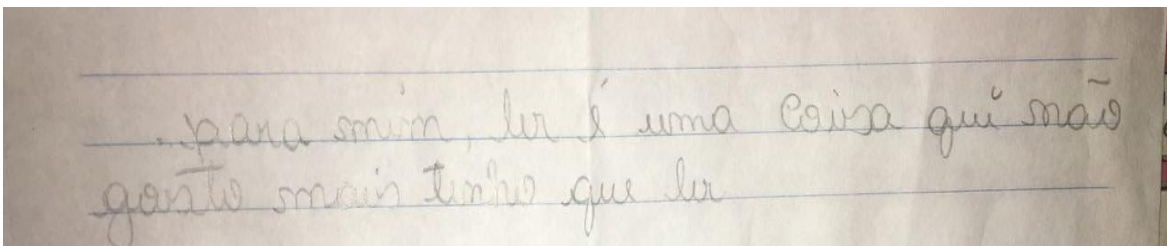 para mim, ler é uma coisa qui não
gosto mais tenho que ler